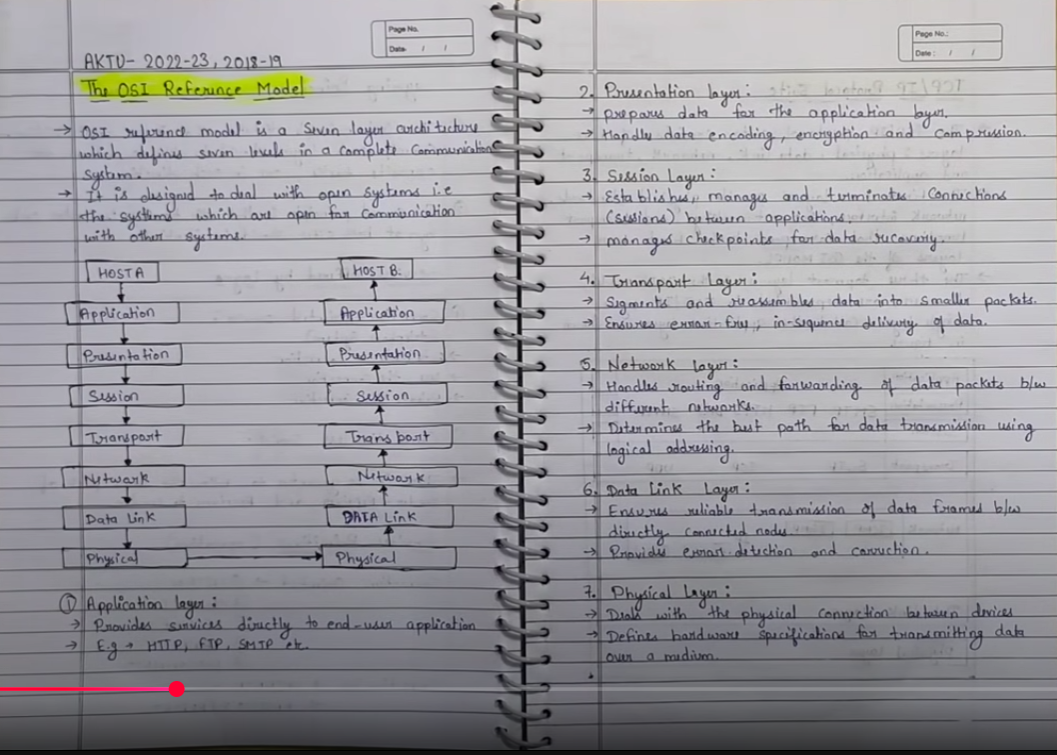 Page No.
Date / /
AKTU- 2022-23, 2018-19
The OSI Reference Model
→ OSI reference model is a seven layer architecture
which defines seven levels in a complete communication
system.
→ It is designed to deal with open systems i.e
the systems which are open for communication
with other systems.
HOST A
Application
Presentation
Session
Transport
Network
Data Link
Physical
HOST B.
Application
Presentation
Session
Transport
Network
DATA Link
Physical
① Application layer:
→ Provides services directly to end-user application
→ E.g → HTTP, FTP, SMTP etc.
Page No.:
Date: / /
2. Presentation layer:
→ prepares data for the application layer.
→ Handles data encoding, encryption and compression.
3. Session Layer:
→ Establishes, manages and terminates connections
(sessions) between applications.
→ manages checkpoints for data recovery.
4. Transport Layer:
→ Segments and reassembles data into smaller packets.
→ Ensures error-free, in-sequence delivery of data.
5. Network layer:
→ Handles routing and forwarding of data packets b/w
different networks.
→ Determines the best path for data transmission using
logical addressing.
6. Data Link Layer:
→ Ensures reliable transmission of data frames b/w
directly connected nodes.
→ Provides error detection and correction.
7. Physical Layer:
→ Deals with the physical connection between devices
→ Defines hardware specifications for transmitting data
over a medium.